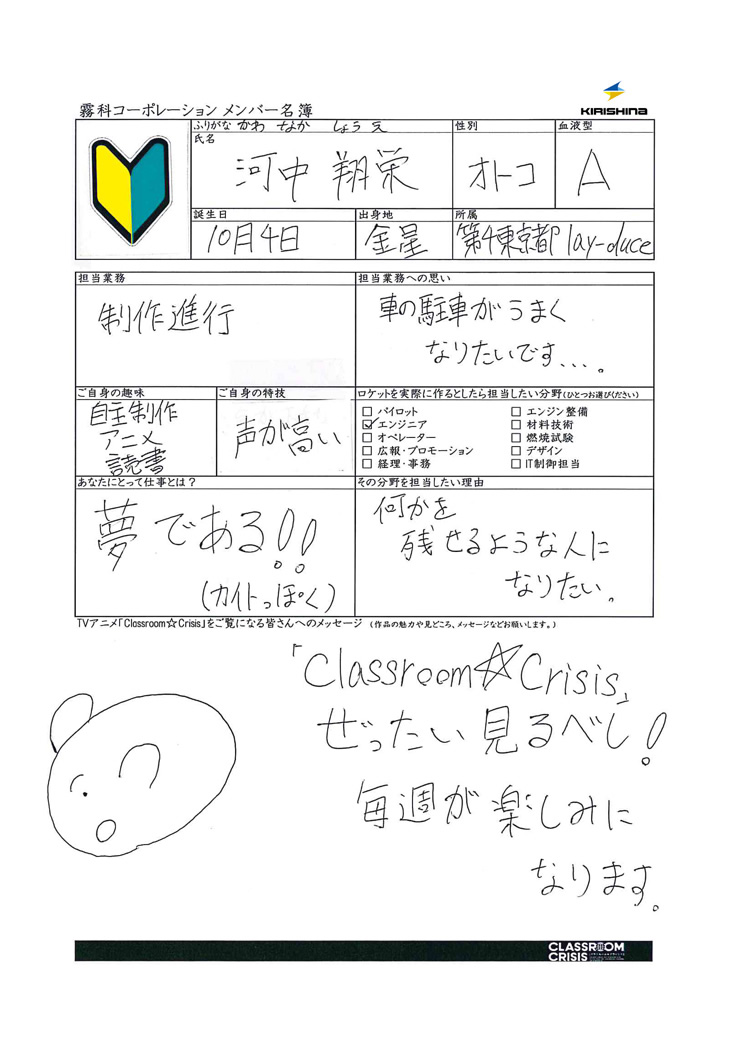 KIRISHINA
霧科コーポレーション メンバー名簿
ふりがな かわ なか しょう え
氏名
河中 翔栄
性別
オトコ
血液型
A
誕生日
10月4日
出身地
金星
所属
第4東京都 lay-duce
担当業務
制作進行
担当業務への思い
車の駐車がうまく
なりたいです...。
ご自身の趣味
自主制作
アニメ
読書
ご自身の特技
声が高い
ロケットを実際に作るとしたら担当したい分野(ひとつお選びください)
□ パイロット
☑ エンジニア
□ オペレーター
□ 広報・プロモーション
□ 経理・事務
□ エンジン整備
□ 材料技術
□ 燃焼試験
□ デザイン
□ IT制御担当
あなたにとって仕事とは？
夢である!!
(カイトっぽく)
その分野を担当したい理由
何かを
残せるような人に
なりたい。
TVアニメ「Classroom☆Crisis」をご覧になる皆さんへのメッセージ （作品の魅力や見どころ、メッセージなどお願いします。）
「Classroom☆Crisis」
ぜったい見るべし!
毎週が楽しみに
なります。
CLASSROOM
CRISIS